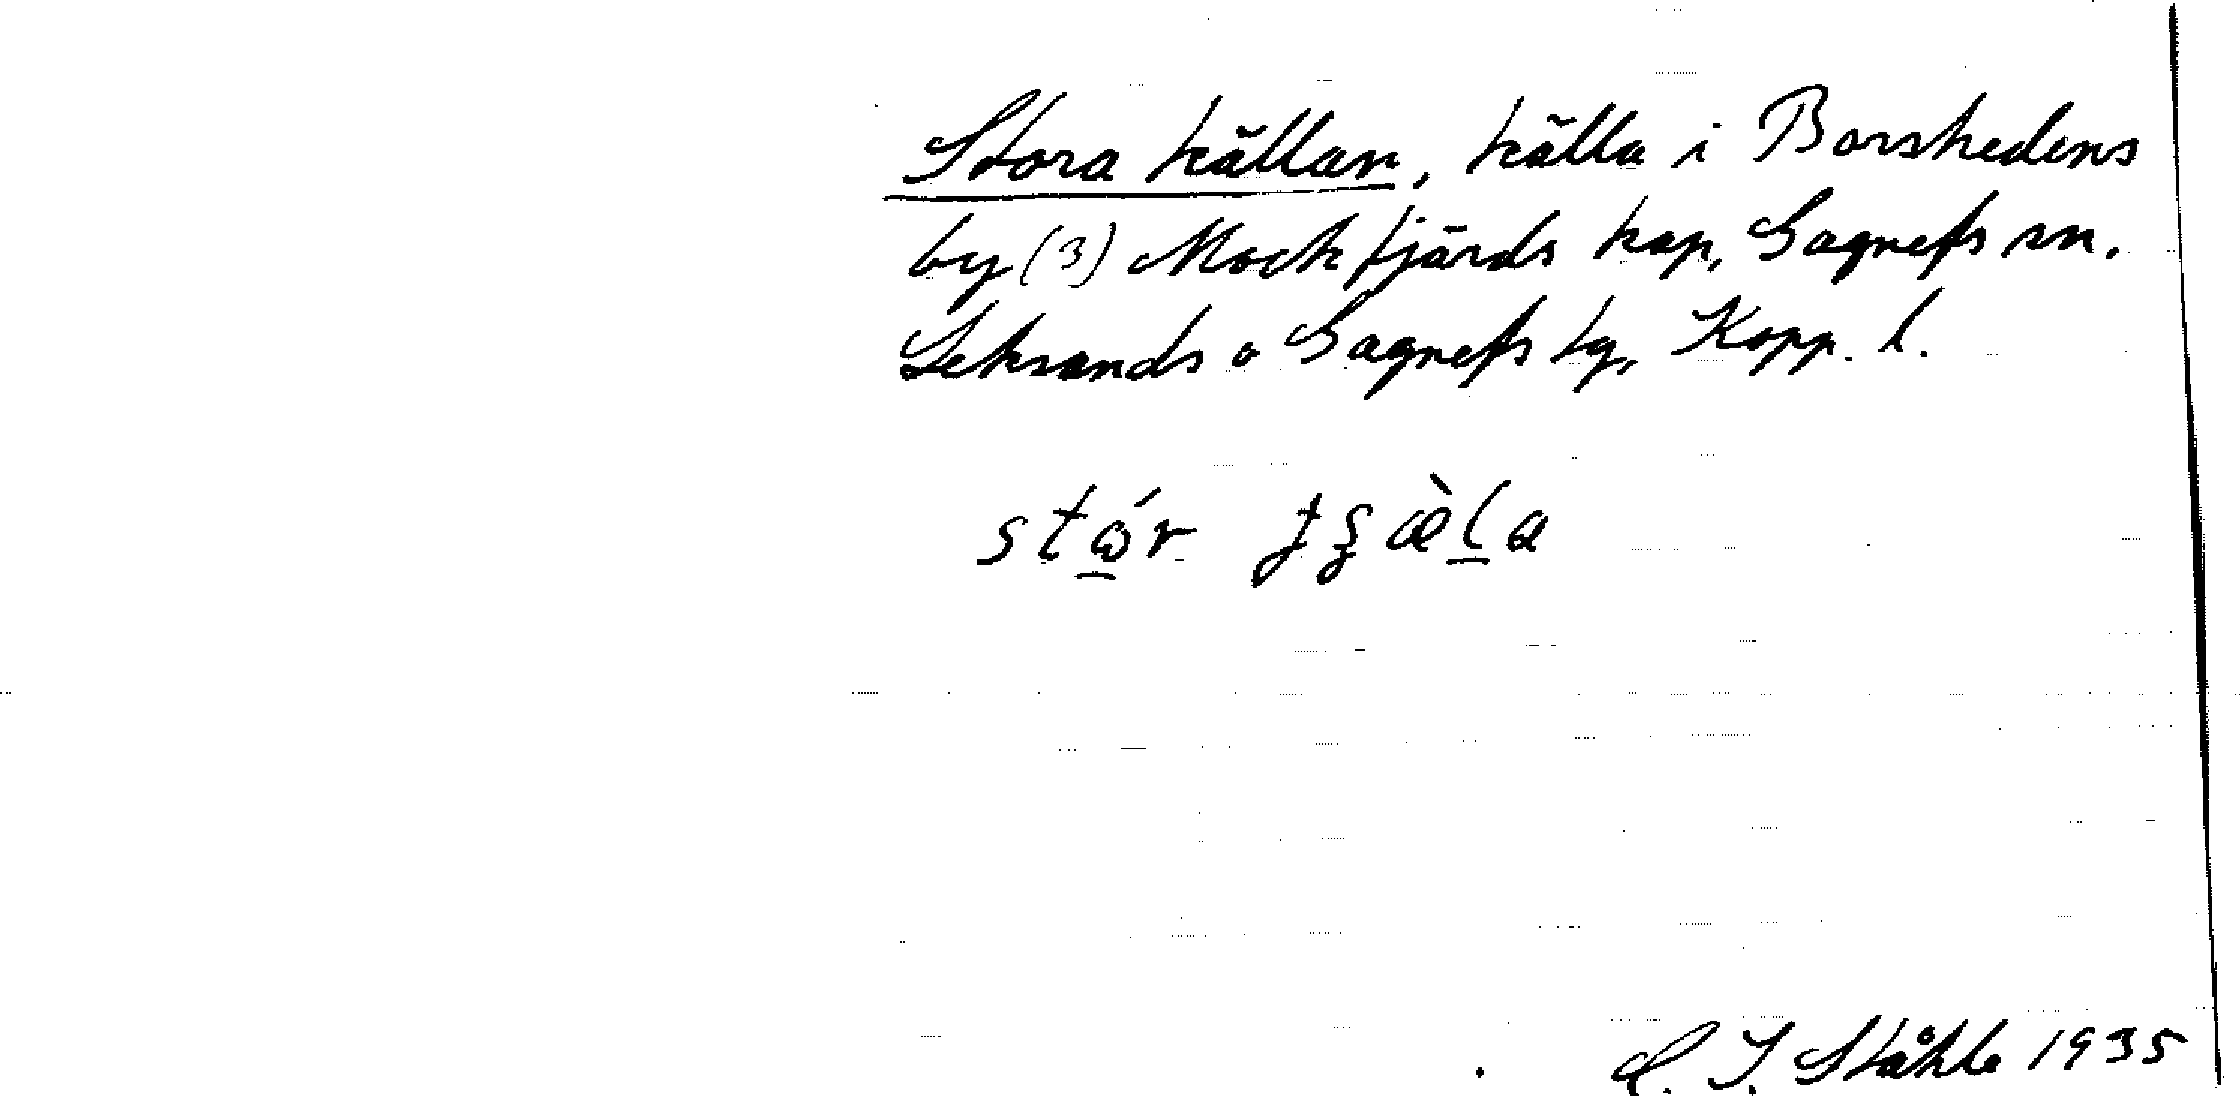 Stora källan, källa i Borshedens
by (3) Mockfjärds kap, Gagnefs sn.
Leksands o Gagnefs tg, Kopp. l.
stώ̱r ʈʂæ̀ḻa
C. I. Ståhle 1935